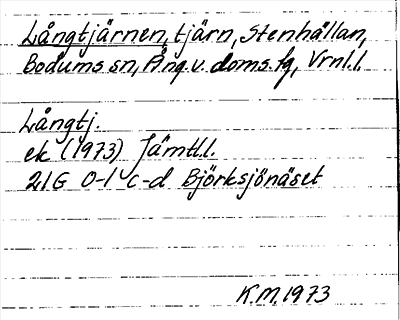 Långtjärnen, tjärn, Stenhällan,
Bodums sn, Ång.v. doms.fg, Vrnl.l.
Långtj.
ek (1973) Jämtl.l.
21G 0-1 c-d Björksjönäset
K.M. 1973